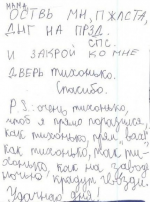 МАМА
ОСТВЬ МН, ПЖЛСТА,
ДНГ НА ПРЗД.
СПС.
И ЗАКРОЙ КО МНЕ
ДВЕРЬ тихонько.
Спасибо.
P.S: очень тихонько,
чтоб я прямо поразился,
как тихонько, прям "вау"
как тихонько, так ти-
хонько, как на заводе
ночью крадут гвозди.
Удачного дня!